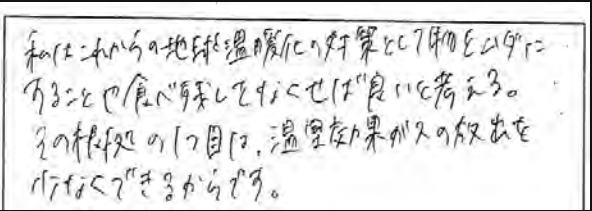 私はこれからの地球温暖化の対策として物をムダに
することや食べ残しをなくせば良いと考える。
その根拠の1つ目は、温室効果ガスの放出を
少なくできるからです。